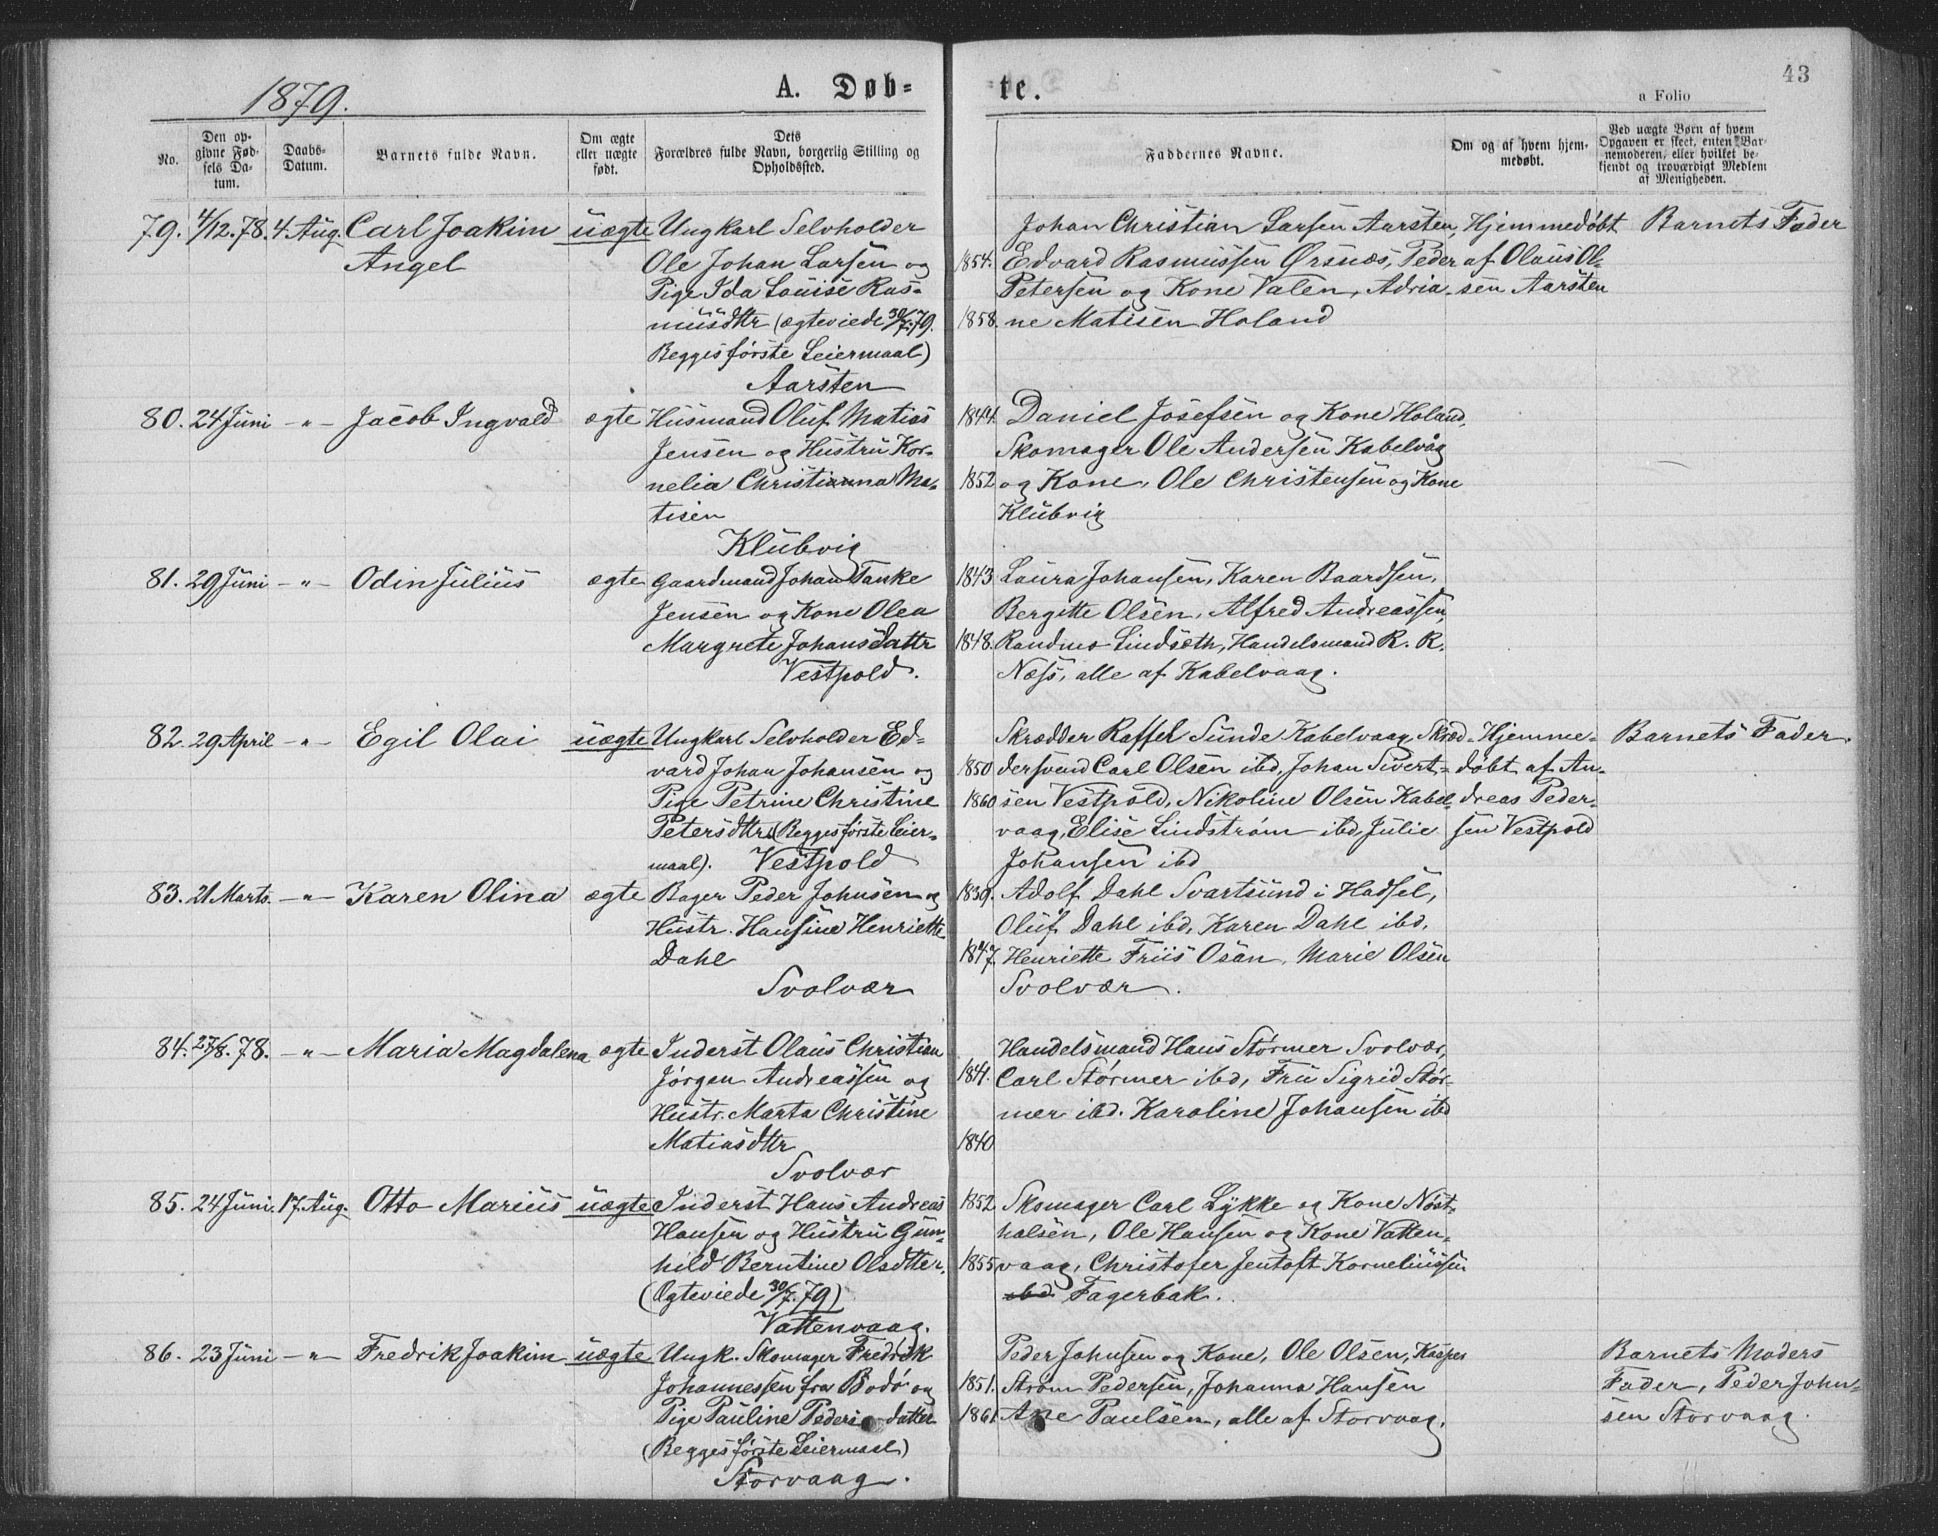 1879.
A. Døb-
te.
43
a Folio
No.
Den op-
givne Fød-
sels Da-
tum.
Daabs-
Datum.
Barnets fulde Navn.
Om ægte
eller uægte
født.
Dets
Forældres fulde Navn, borgerlig Stilling og
Opholdssted.
Faddernes Navne.
Om og af hvem hjem-
medøbt.
Ved uægte Børn af hvem
Opgaven er skeet, enten Bar-
nemoderen, eller hvilket be-
kjendt og troværdigt Medlem
af Menigheden.
79. 4/12.78. 4 Aug. Carl Joakim uægte Ungkarl Selvholder
Angel Ole Johan Larsen og
Pige Ida Louise Ras-
musdttr (ægteviede 30/7.79.
Begges første Leiermaal)
Aarsten
Johan Christian Larsen Aarsten, Hjemmedøbt Barnets Fader
1854. Edvard Rasmussen Ørsnæs, Peder af Olaus Ol-
Petersen og Kone Valen, Adria- sen Aarsten
1858. ne Matisen Holand
80. 24 Juni -"- Jacob Ingvald ægte Husmand Oluf Matias
Jensen og Hustru Kor-
nelia Christianna Ma-
tisen
Klubvig
1844. Daniel Josefsen og Kone Holand,
Skomager Ole Andersen Kabelvåg
1852 og Kone, Ole Christensen og Kone
Klubvig
81. 29 Juni -"- Odin Julius ægte Gaardmand Johan Tanke
Jensen og Kone Olea
Margrete Johansdattr
Vestpold.
1843 Laura Johansen, Karen Baardsen,
Bergitte Olsen, Alfred Andreassen,
1848. Randmo Lindsøth, Handelsmand R. R.
Næss, alle af Kabelvaag.
82. 29 April -"- Egil Olai uægte Ungkarl Selvholder Ed-
vard Johan Johansen og
Pige Petrine Christine
Petersdttr (Begges første Leier-
maal). Vestpold
Skrædder Raffel Sunde Kabelvaag, Skræd- Hjemme- Barnets Fader.
1850 dersvend Carl Olsen ibd, Johan Sivert- døbt af An-
1860 sen Vestpold, Nikoline Olsen Kabel- dreas Peder-
vaag, Elise Lindstrøm ibd, Julie sen Vestpold
Johansen ibd
83. 21 Marts. -"- Karen Olina ægte Bager Peder Johnsen og
Hustr. Hansine Henriette
Dahl
Svolvær
1839. Adolf Dahl Svartsund i Hadsel,
Oluf Dahl ibd, Karen Dahl ibd,
1847. Henriette Friis Osan, Marie Olsen
Svolvær.
84. 27/8.78. -"- Maria Magdalena ægte Inderst Olaus Christian
Jørgen Andreassen og
Hustr. Marta Christine
Matiasdttr
Svolvær
Handelsmand Hans Størmer Svolvær,
1841. Carl Størmer ibd, Fru Sigrid Stør-
mer ibd. Karoline Johansen ibd
1840
85. 24 Juni. 17. Aug. Otto Marius uægte Inderst Hans Andreas
Hansen og Hustru Gun-
hild Berntine Olsdtter.
(Ægteviede 30/7.79)
Vattenvaag.
1852 Skomager Carl Lykke og Kone Nøst-
halsen, Ole Hansen og Kone Vatten-
1855 vaag, Christofer Jentoft Korneliussen
ibd Fagerbak.
86. 23 Juni -"- Fredrik Joakim uægte Ungk. Skomager Fredrik
Johannessen fra Bodø og
Pige Pauline Peders datter
(Begges første Leiermaal)
Storvaag.
Peder Johnsen og Kone, Ole Olsen, Kasper Barnets Moders
1851. Strøm Pedersen, Johanna Hansen Fader, Peder John-
1861. Ane Paulsen, alle af Storvaag. sen Storvaag.